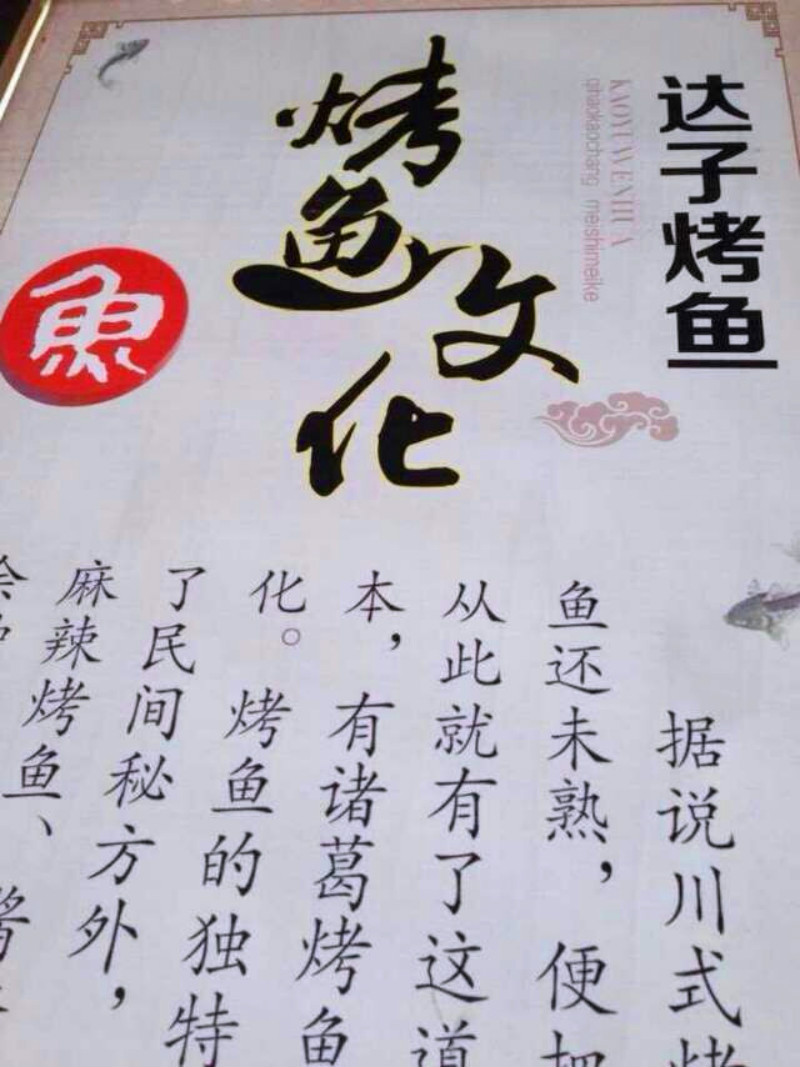 达子烤鱼
KAOYUWENHUA
qihaokaochang meishimeike
烤鱼文化
魚
据说川式烤
鱼还未熟，便把
从此就有了这道
本，有诸葛烤鱼
化。烤鱼的独特
了民间秘方外，
麻辣烤鱼、酱